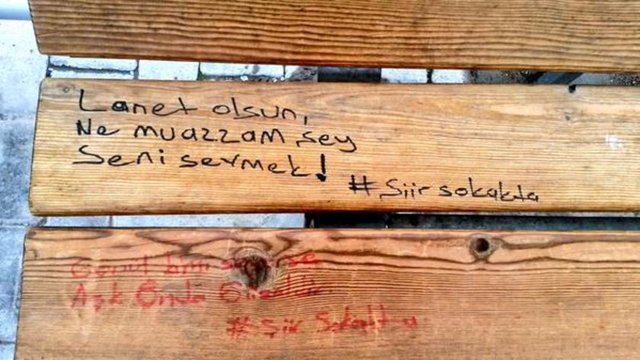 Lanet olsun,
Ne muazzam şey
Seni sevmek!
# Şiir sokakta
Gönül kimi severse
Aşk Onda Güzeldir
# Şiir Sokakta